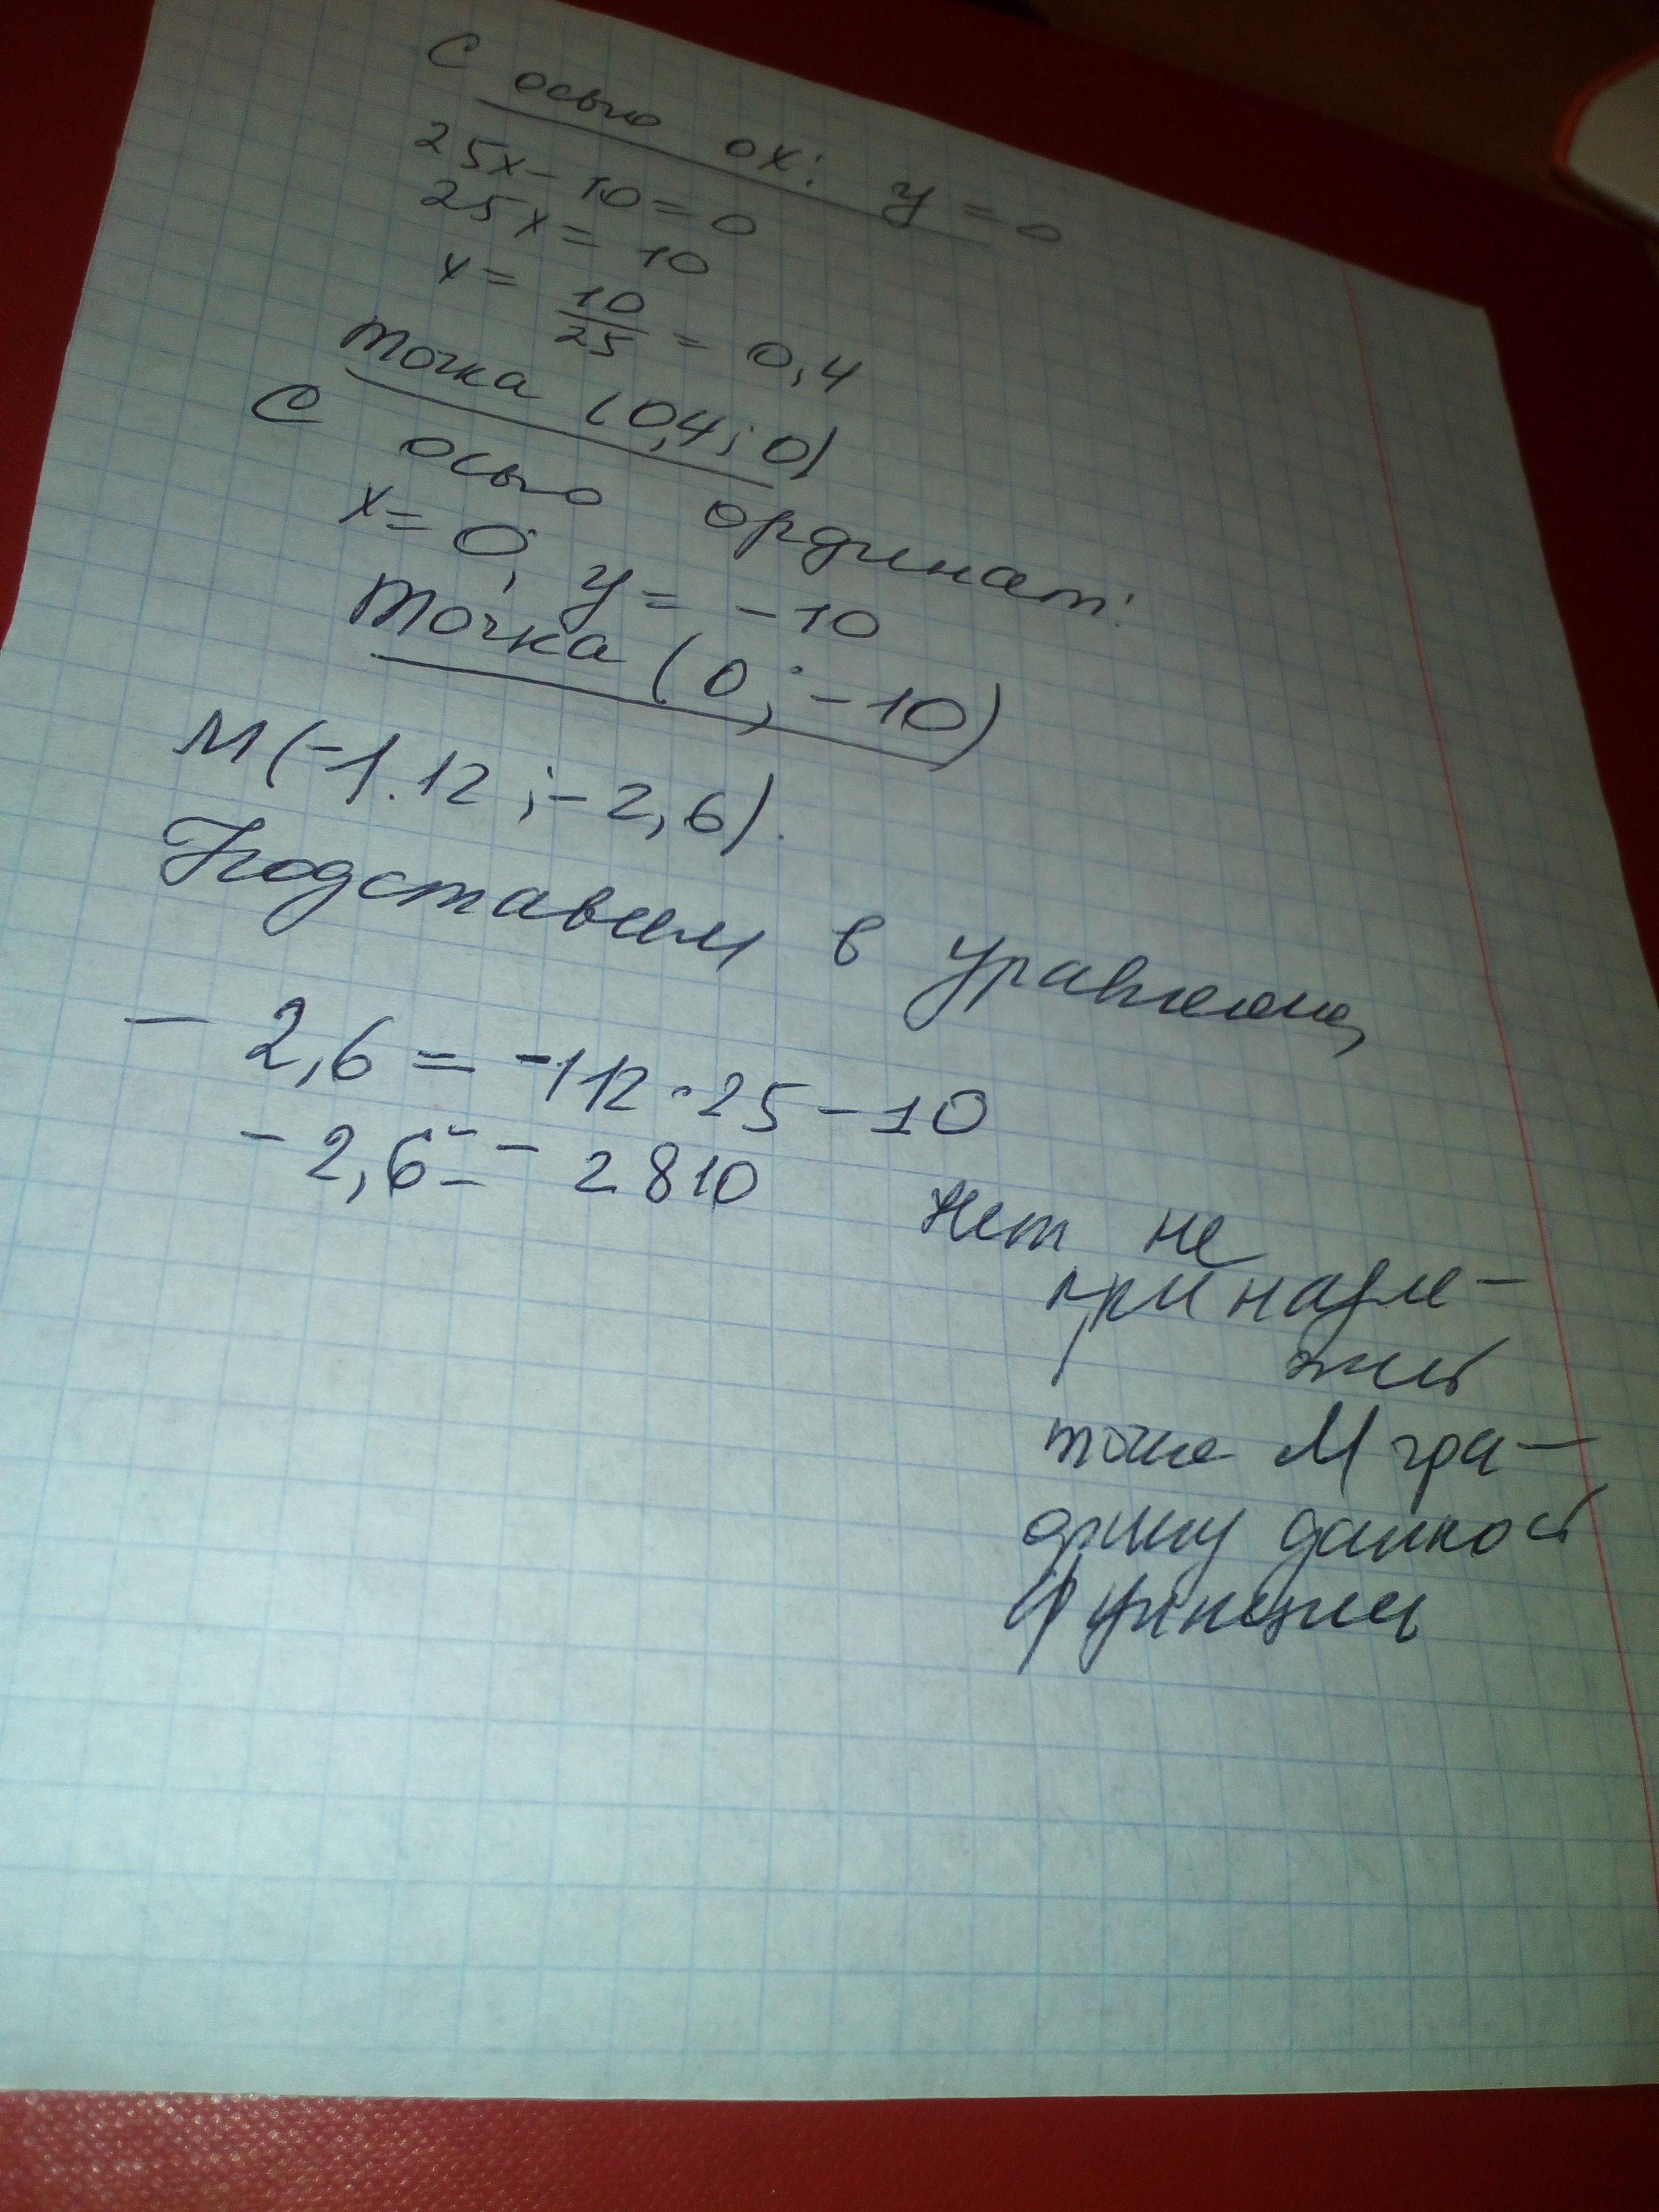 С осью ох: y = 0
25x - 10 = 0
25x = 10
x = 10/25 = 0,4
точка (0,4; 0)
С осью ординат:
x = 0; y = -10
точка (0; -10)
М(-1.12; -2,6).
Подставим в уравнение
- 2,6 = -112·25 - 10
- 2,6 = - 2810
Нет не
принадле-
жит
точка М гра-
фику данной
функции